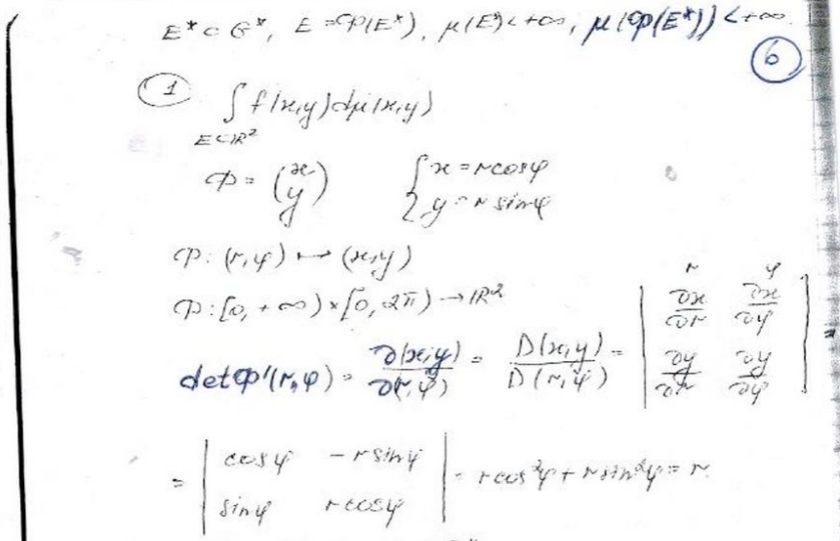 E* ⊂ G*, E = Φ(E*), μ(E) < +∞, μ(Φ(E*)) < +∞.
6
1 ∫ f(x,y) dμ(x,y)
E⊂ℝ²
Φ = (x y) { x = r cos φ
y = r sin φ
Φ: (r,φ) ↦ (x,y)
Φ: [0, +∞) × [0, 2π) → ℝ²
det Φ'(r,φ) = ∂(x,y)/∂(r,φ) = D(x,y)/D(r,φ) = | r φ ∂x/∂r ∂x/∂φ ∂y/∂r ∂y/∂φ | =
= | cos φ −r sin φ sin φ r cos φ | = r cos²φ + r sin²φ = r.